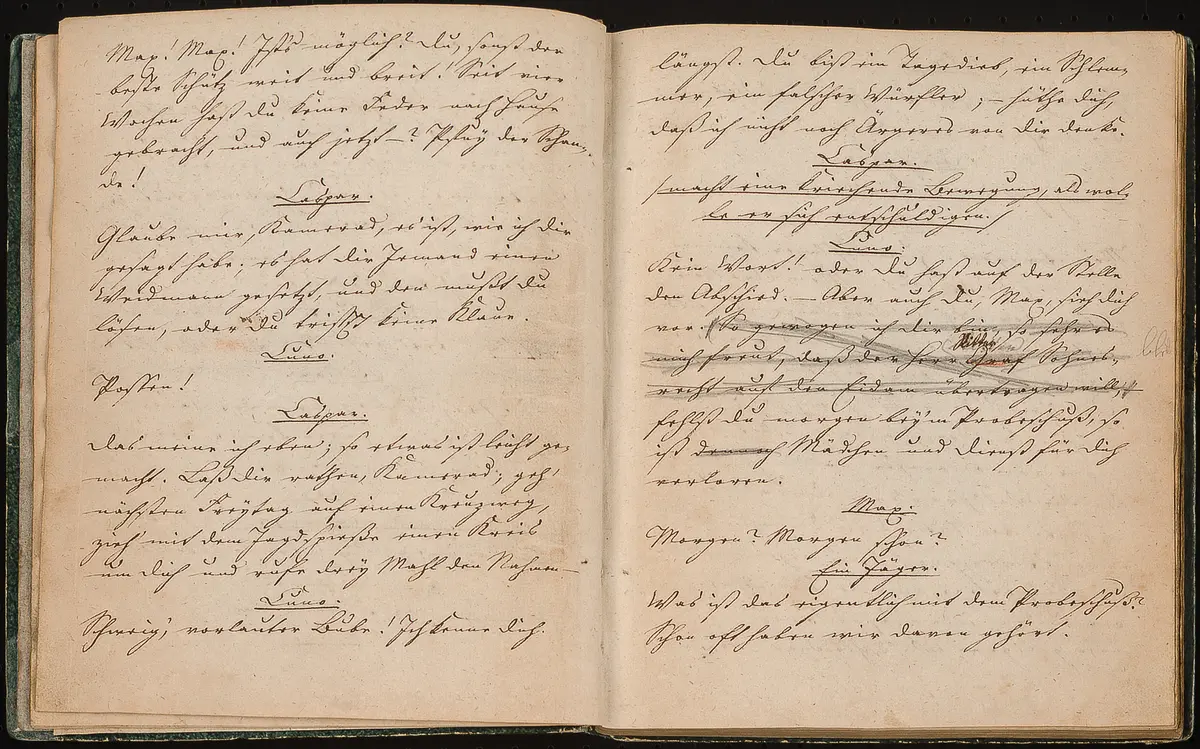 Max! Max! Ists möglich? Du, sonst der
beste Schütz weit und breit! Seit vier
Wochen hast du keine Feder nach Hause
gebracht, und auch jetzt —? Pfuy der Schan-
de!
Caspar.
Glaube mir, Kamerad, es ist, wie ich dir
gesagt habe; es hat dir Jemand einen
Weidmann gesetzt, und den mußt du
lösen, oder du triffst keine Klaue.
Cuno.
Possen!
Caspar.
Das meine ich eben; so etwas ist leicht ge-
macht. Laß dir rathen, Kamerad; geh'
nächsten Freytag auf einen Kreuzweg,
zieh' mit dem Jagdspieße einen Kreis
um dich und rufe drey Mahl den Nahmen —
Cuno.
Schweig', vorlauter Bube! Ich kenne dich
längst. Du bist ein Tagedieb, ein Schlem-
mer, ein falscher Würfler; — hüthe dich,
daß ich nicht noch Ärgeres von dir denke.
Caspar.
/macht eine kriechende Bewegung, als wol-
le er sich entschuldigen./
Cuno.
Kein Wort! oder du hast auf der Stelle
den Abschied. — Aber auch du, Max, sieh dich
vor. So gewogen ich dir bin, so sehr es
Ritter
mich freut, daß der Herr Graf Sohnes-
recht auf den Eidam übertragen will,
fehlst du morgen bey'm Probeschuß, so
ist dennoch Mädchen und Dienst für dich
verloren.
Max.
Morgen? Morgen schon?
Ein Jäger.
Was ist das eigentlich mit dem Probeschuß?
Schon oft haben wir davon gehört.